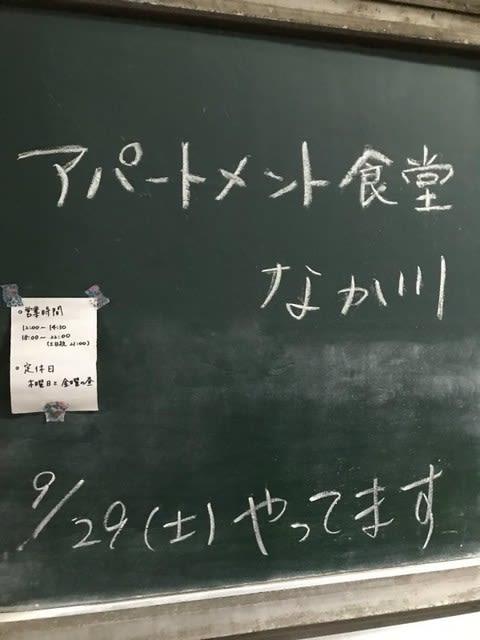 アパートメント食堂
なか川
○営業時間
12:00〜14:30
18:00〜22:00
(土日祝 21:00)
○定休日
木曜日と金曜の昼
9/29(土)やってます